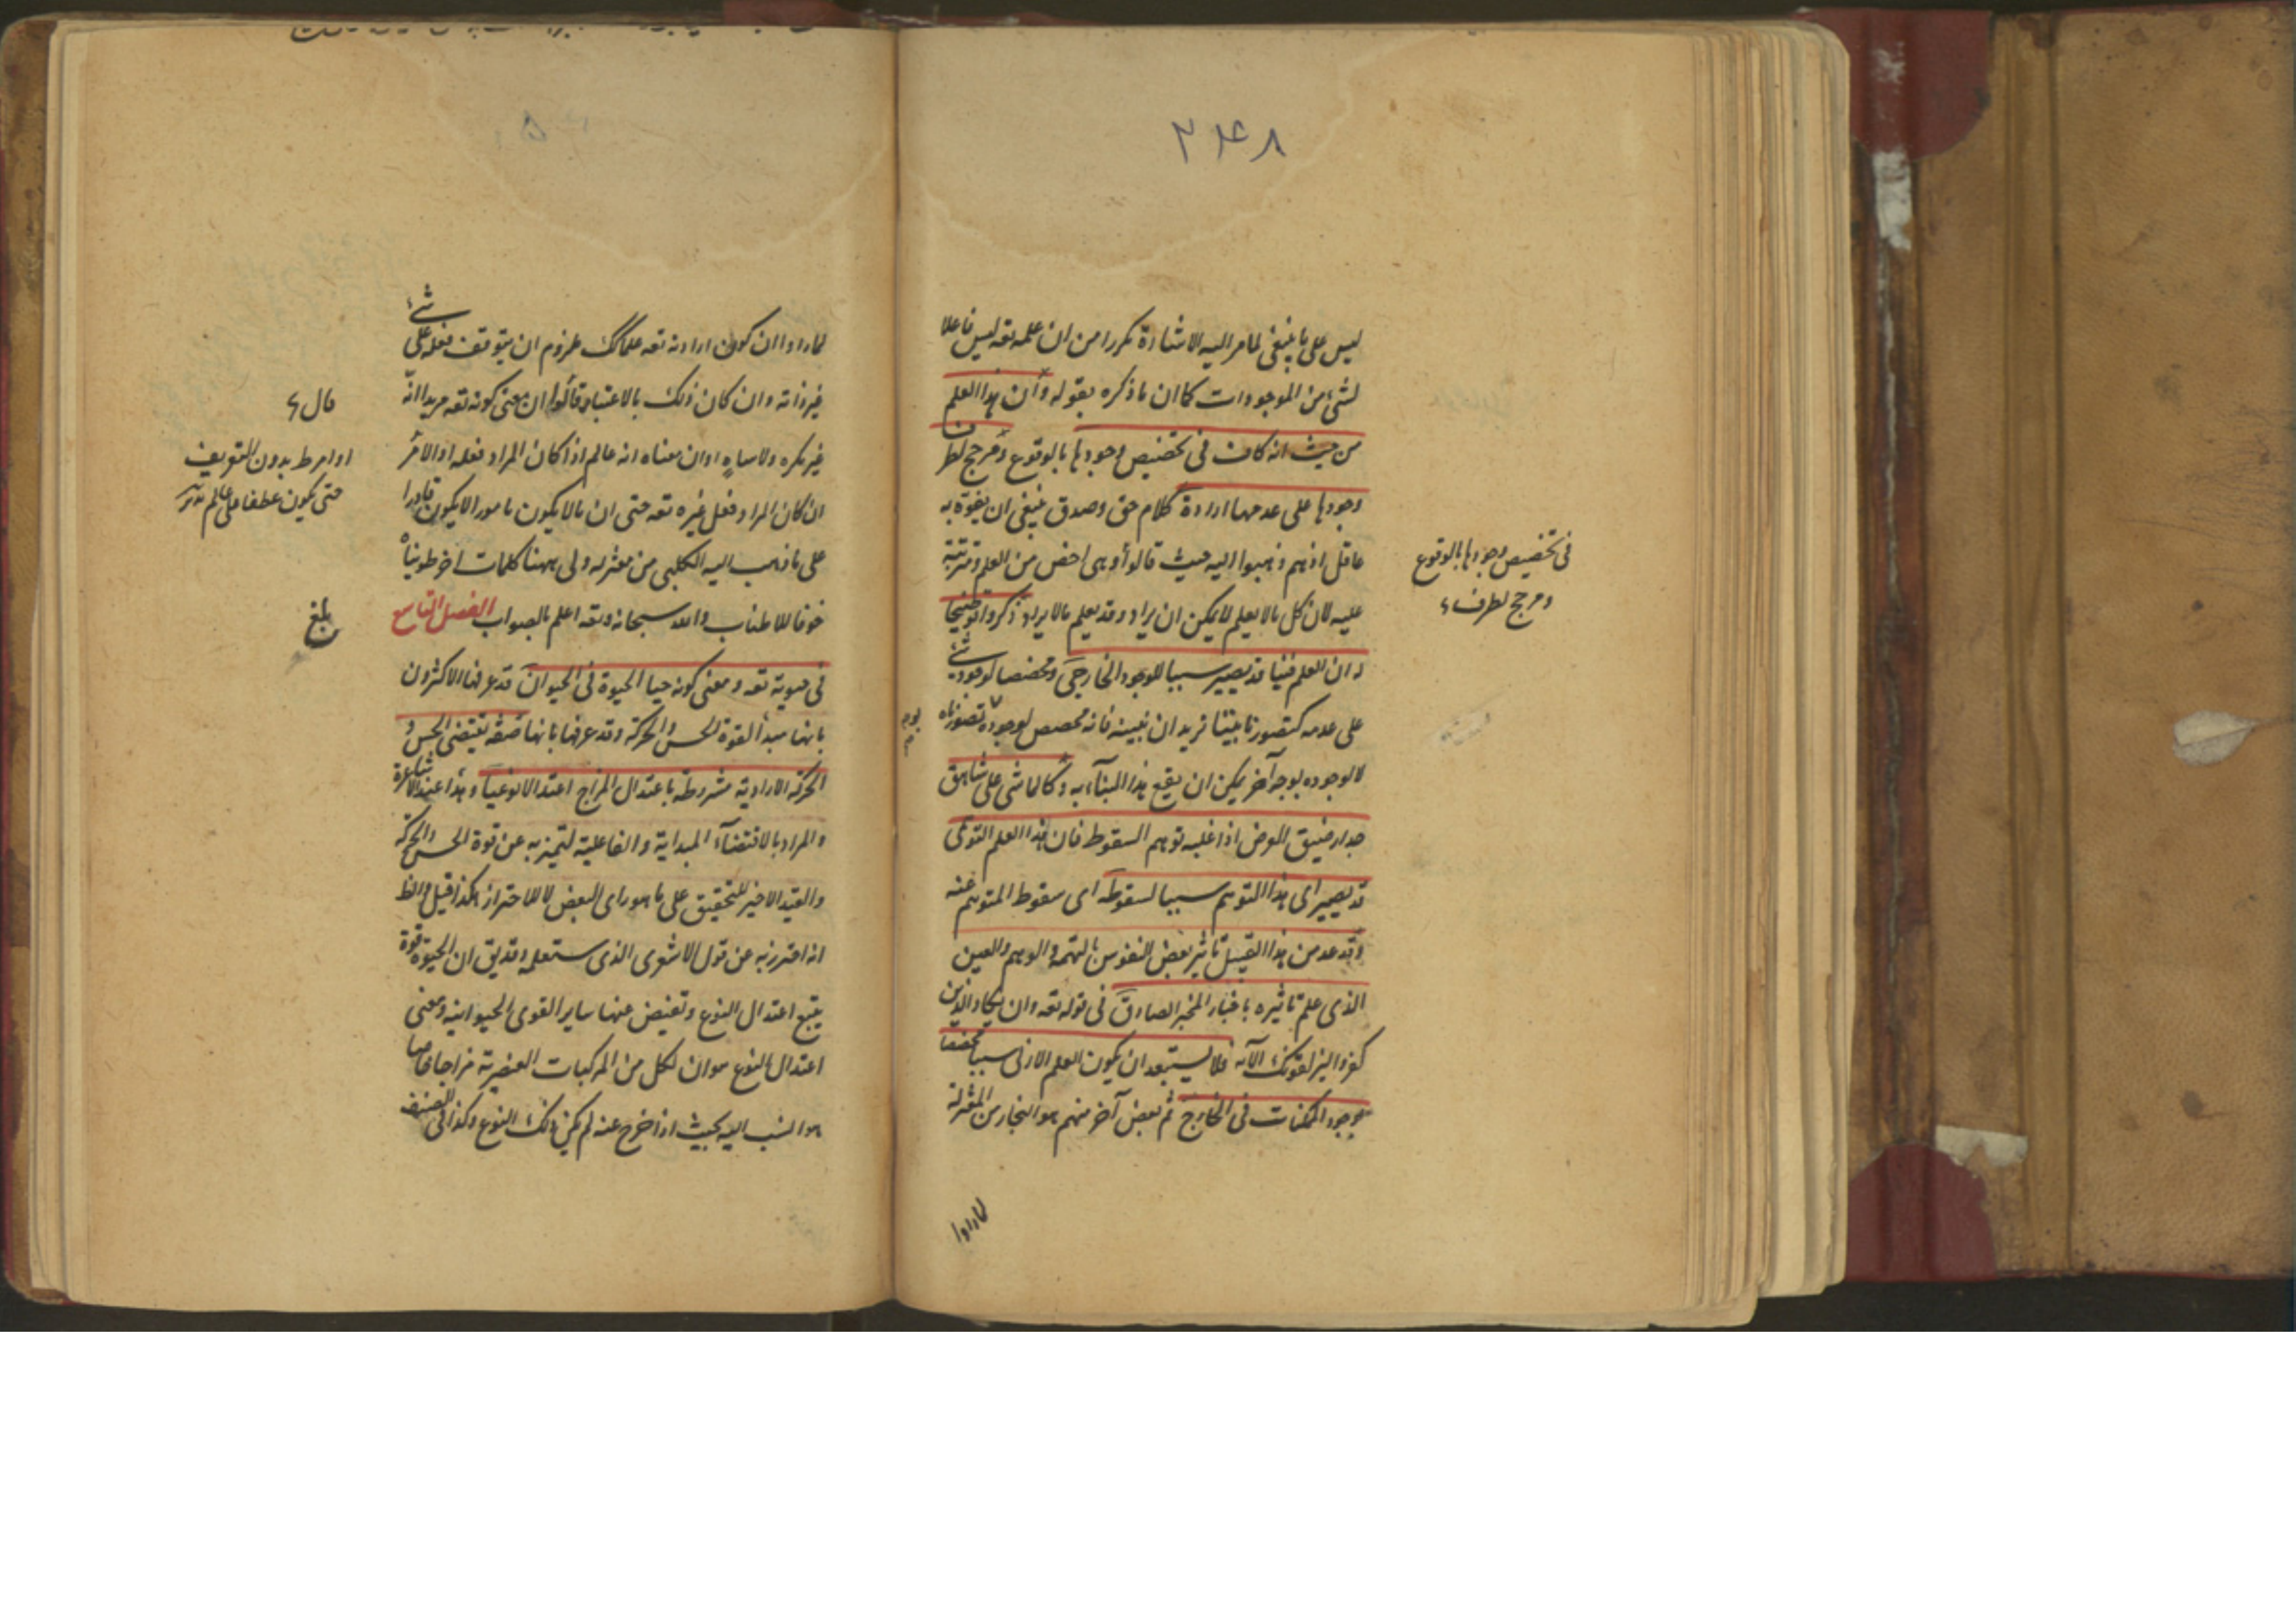 ۲۴۸
ليس على ما ينبغى لما مر اليه الاشارة مكررا من ان علمه تعه ليس فاعلا
لشئ من الموجودات كما ان ما ذكره بقوله وان هذا العلم
من حيث انه كاف فى تخصيص وجودها بالوقوع ومرجح لطرف
وجودها على عدمها ارادة كلام حق وصدق ينبغى ان يفوه به
عاقل اذ هم ذهبوا اليه حيث قالوا وهى اخص من العلم ومترتبة
عليه لان كل ما لا يعلم لا يمكن ان يراد وقد يعلم ما لا يراد ذكروا توضيحا
ان العلم فينا قد يصير سببا للوجود الخارجى ومخصصا لوجود شئ
على عدمه كتصورنا بيتا نريد ان نبنيه فانه مخصص لوجوده تصورناه
لا لوجوده بوجه آخر يمكن ان يقع هذا البناء به وكالماشى على شاهق
جدار ضيق العرض اذا غلبه توهم السقوط فان هذا العلم التوهمى
قد يصير اى هذا التوهم سببا لسقوطه اى سقوط المتوهم عنه
وقد عد من هذا القبيل تاثير بعض النفوس بالهمة والوهم والعين
الذى علم تاثيره باخبار المخبر الصادق فى قوله تعه وان يكاد الذين
كفروا ليزلقونك الآيه فلا يستبعد ان يكون العلم الازلى سببا مخصصا
لوجود الممكنات فى الخارج ثم بعض آخر منهم هو النجار من المعتزلة
لما راوا
فى تخصيص وجودها بالوقوع
ومرجح لطرف
لما راوا ان كون ارادته تعه علما لزوم ان يتوقف فعله على شئ
غير ذاته وان كان ذلك بالاعتبار قالوا ان معنى كونه تعه مريدا انه
غير مكره ولا ساه او ان معناه انه عالم اذا كان المراد فعله او الامر
ان كان المراد فعل غيره تعه حتى ان ما لا يكون مامورا لا يكون مرادا
على ما ذهب اليه الكعبى من معتزله ولى ههنا كلمات اخر طويناه
خوفا للاطناب والله سبحانه وتعه اعلم بالصواب الفصل التاسع
فى حيوته تعه ومعنى كونه حيا الحيوة فى الحيوان قد عرفها الاكثرون
بانها مبدأ لقوة الحس والحركة وقد عرفها بانها صفة تقتضى الحس و
الحركة الارادية مشروطة باعتدال المزاج اعتدالا نوعيا وهذا عند الاشاعرة
والمراد بالاقتضاء المبداية والفاعلية لتميز به عن قوة الحس والحركة
والقيد الاخير للتحقيق على ما هو راى البعض لا للاحتراز هكذا قيل والظ
انه احترز به عن قول الاشعرى الذى ستعلمه وقد يق ان الحيوة قوة
يتبع اعتدال النوع وتفيض عنها ساير القوى الحيوانيه ومعنى
اعتدال النوع هو ان لكل من المركبات العنصرية مزاجا خاصا
هو انسب اليه بحيث اذا خرج عنه لم يكن ذلك النوع وكذا فى الصنف
او امر ط بدون التعريف
حتى يكون عطفا على عالم
بلغ